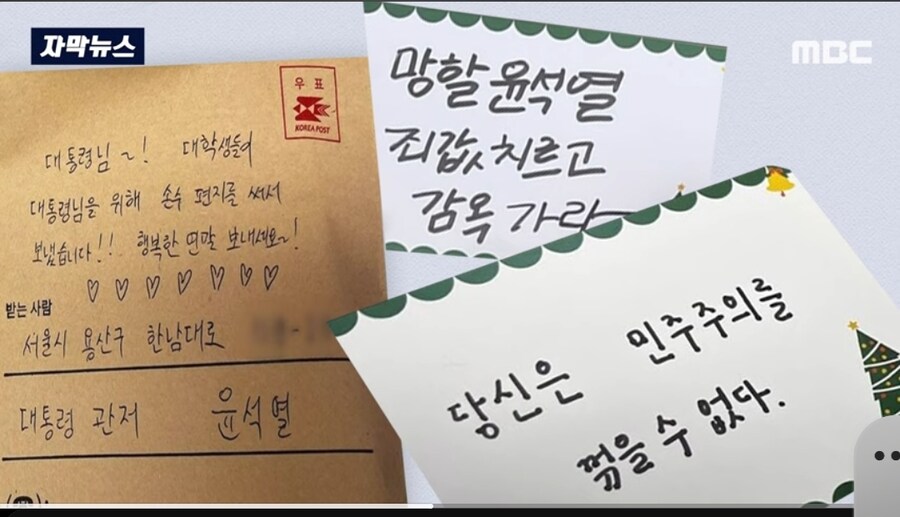 자막뉴스
MBC
우 표
KOREA POST
대통령님~! 대학생들이
대통령님을 위해 손수 편지를 써서
보냈습니다!! 행복한 연말 보내세요~!
♡ ♡ ♡ ♡ ♡ ♡ ♡
받는 사람
서울시 용산구 한남대로
대통령 관저 윤석열
망할 윤석열
죄값 치르고
감옥 가라~
당신은 민주주의를
꺾을 수 없다.